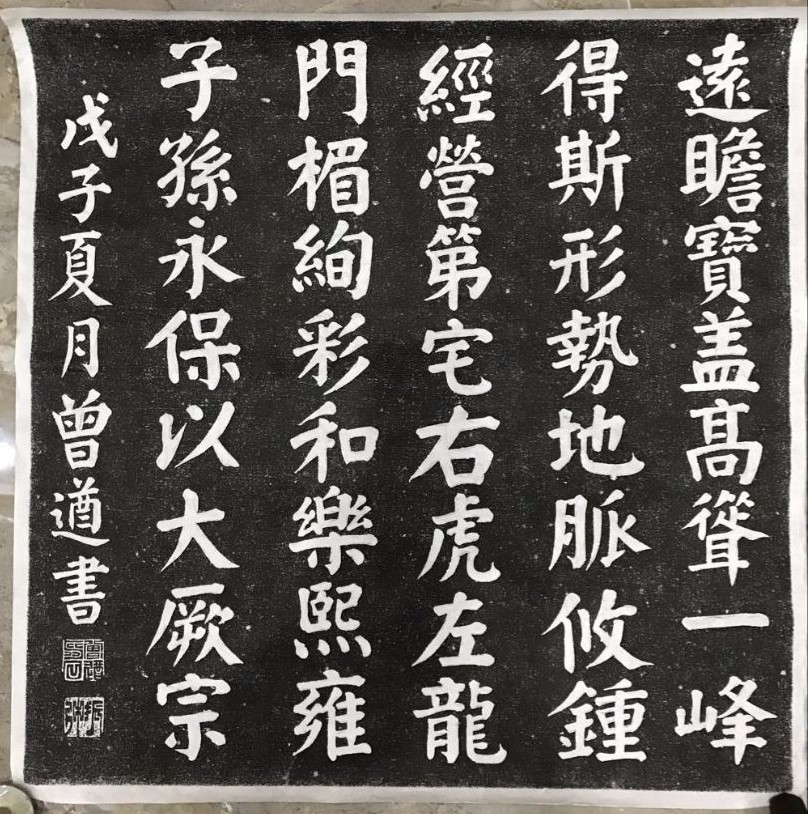 遠瞻寶盖髙聳一峰
得斯形勢地脈攸鍾
經營第宅右虎左龍
門楣絢彩和樂熙雍
子孫永保以大厥宗
戊子夏月曾遒書